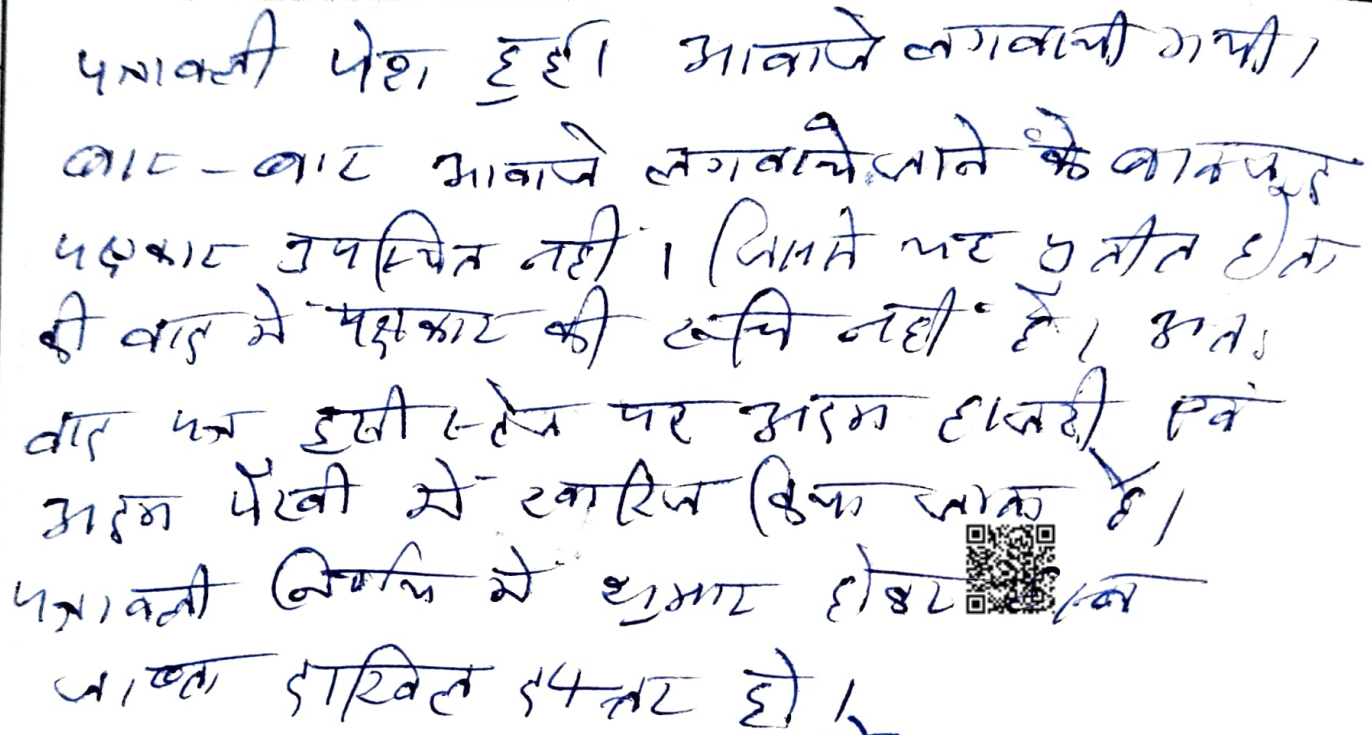 पत्रावली पेश हुई। आवाजे लगवायी गयी।
बार-बार आवाजे लगवाये जाने के बावजूद
पक्षकार उपस्थित नहीं । जिससे यह प्रतीत होता
की वाद में पक्षकार की रूचि नहीं है। अतः
वाद पत्र इसी स्टेज पर अदम हाजरी एवं
अदम पैरवी में खारिज किया जाता है।
पत्रावली निर्णित में शुमार होकर
जाब्ता दाखिल दफ्तर हो।